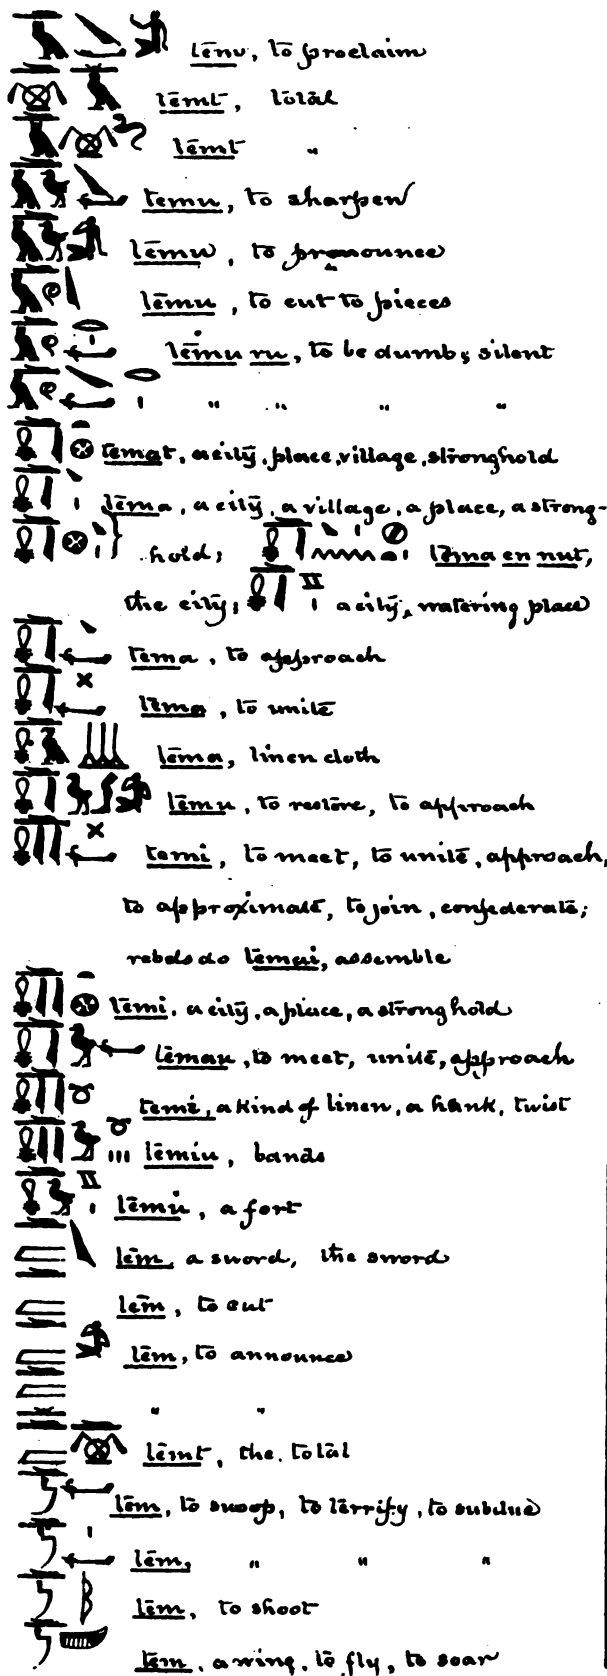 temu, to proclaim
temt, total
temt "
temu, to sharpen
temu, to pronounce
temu, to cut to pieces
temu ru, to be dumb; silent
" " " "
temat, a city, place, village, stronghold
tema, a city, a village, a place, a strong-
hold; tema en nut,
the city; a city, watering place
tema, to approach
tema, to unite
tema, linen cloth
temu, to restore, to approach
temi, to meet, to unite, approach,
to approximate, to join, confederate;
rebels do temai, assemble
temi, a city, a place, a stronghold
temau, to meet, unite, approach
temi, a kind of linen, a hank, twist
temiu, bands
temu, a fort
tem, a sword, the sword
tem, to cut
tem, to announce
" "
temt, the total
tem, to swoop, to terrify, to subdue
tem, " " "
tem, to shoot
tem, a wing, to fly, to soar